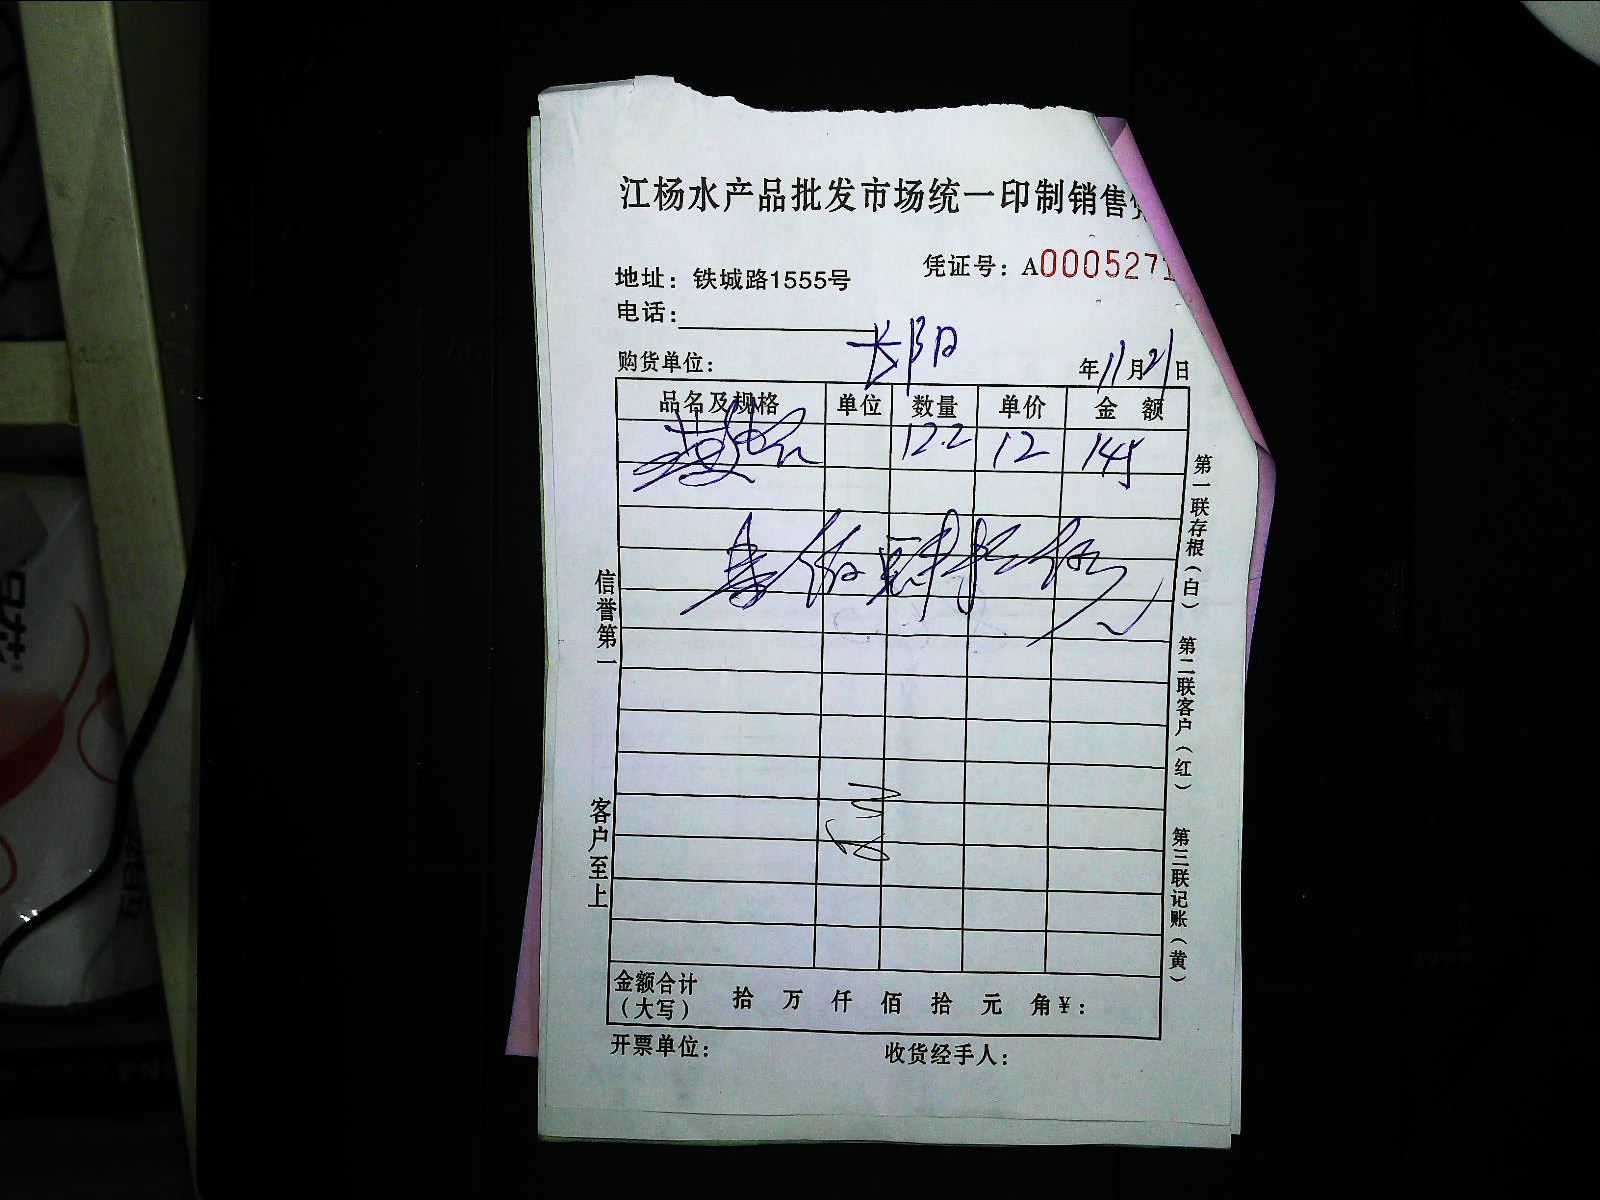 江杨水产品批发市场统一印制销售
凭证号：A0005271
地址：铁城路1555号
电话：
长阳
购货单位：
年11月21日
品名及规格 单位 数量 单价 金 额
12.2 12 145
信誉第一
客户至上
第一联存根（白）
第二联客户（红）
第三联记账（黄）
金额合计（大写） 拾 万 仟 佰 拾 元 角 ¥：
开票单位： 收货经手人：